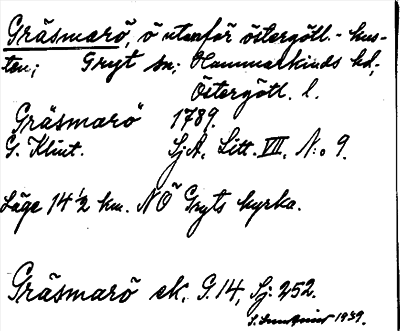 Gräsmarö, ö utanför östergötl.-kus-
ten; Gryt sn; Hammarkinds hd,
Östergötl. l.
Gräsmarö 1789.
G. Klint. Sj. A. Litt. VII. N:o 9.
Läge 14 1/2 km. NÖ Gryts kyrka.
Gräsmarö ek. G. 14, Sj: 252.
1939.